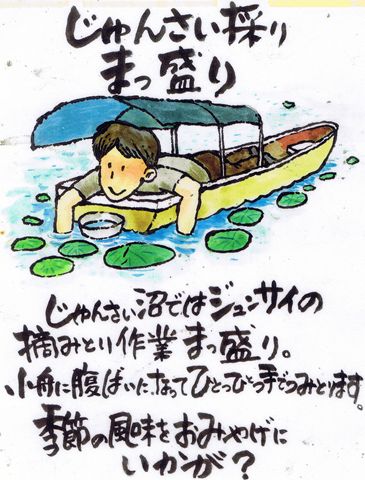 じゅんさい採り
まっ盛り
じゅんさい沼ではジュンサイの
摘みとり作業まっ盛り。
小舟に腹ばいになってひとつひとつ手でつみとります。
季節の風味をおみやげに
いかが?